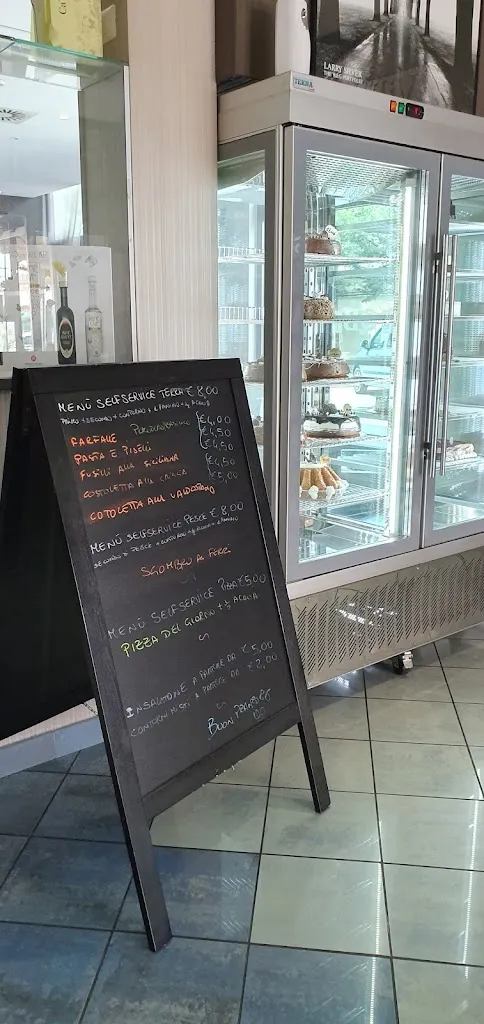 LARRY SILVER
TEKNA
MENÙ SELFSERVICE TERRA € 8,00
PRIMO + SECONDO + CONTORNO + PANINO + ½ ACQUA
FARFALLE € 4,00
PASTA E PISELLI € 4,50
FUSILLI ALLA SICILIANA € 4,50
COTOLETTA ALLA € 4,50
COTOLETTA ALLA VALDOSTANA € 5,00
MENÙ SELFSERVICE PESCE € 8,00
SECONDO DI PESCE + CONTORNO +
SGOMBRO AI FERRI
MENÙ SELFSERVICE PIZZA € 5,00
PIZZA DEL GIORNO + ½ ACQUA
INSALATONE A PARTIRE DA € 5,00
CONTORNI MISTI A PARTIRE DA € 2,00
BUON PRANZO